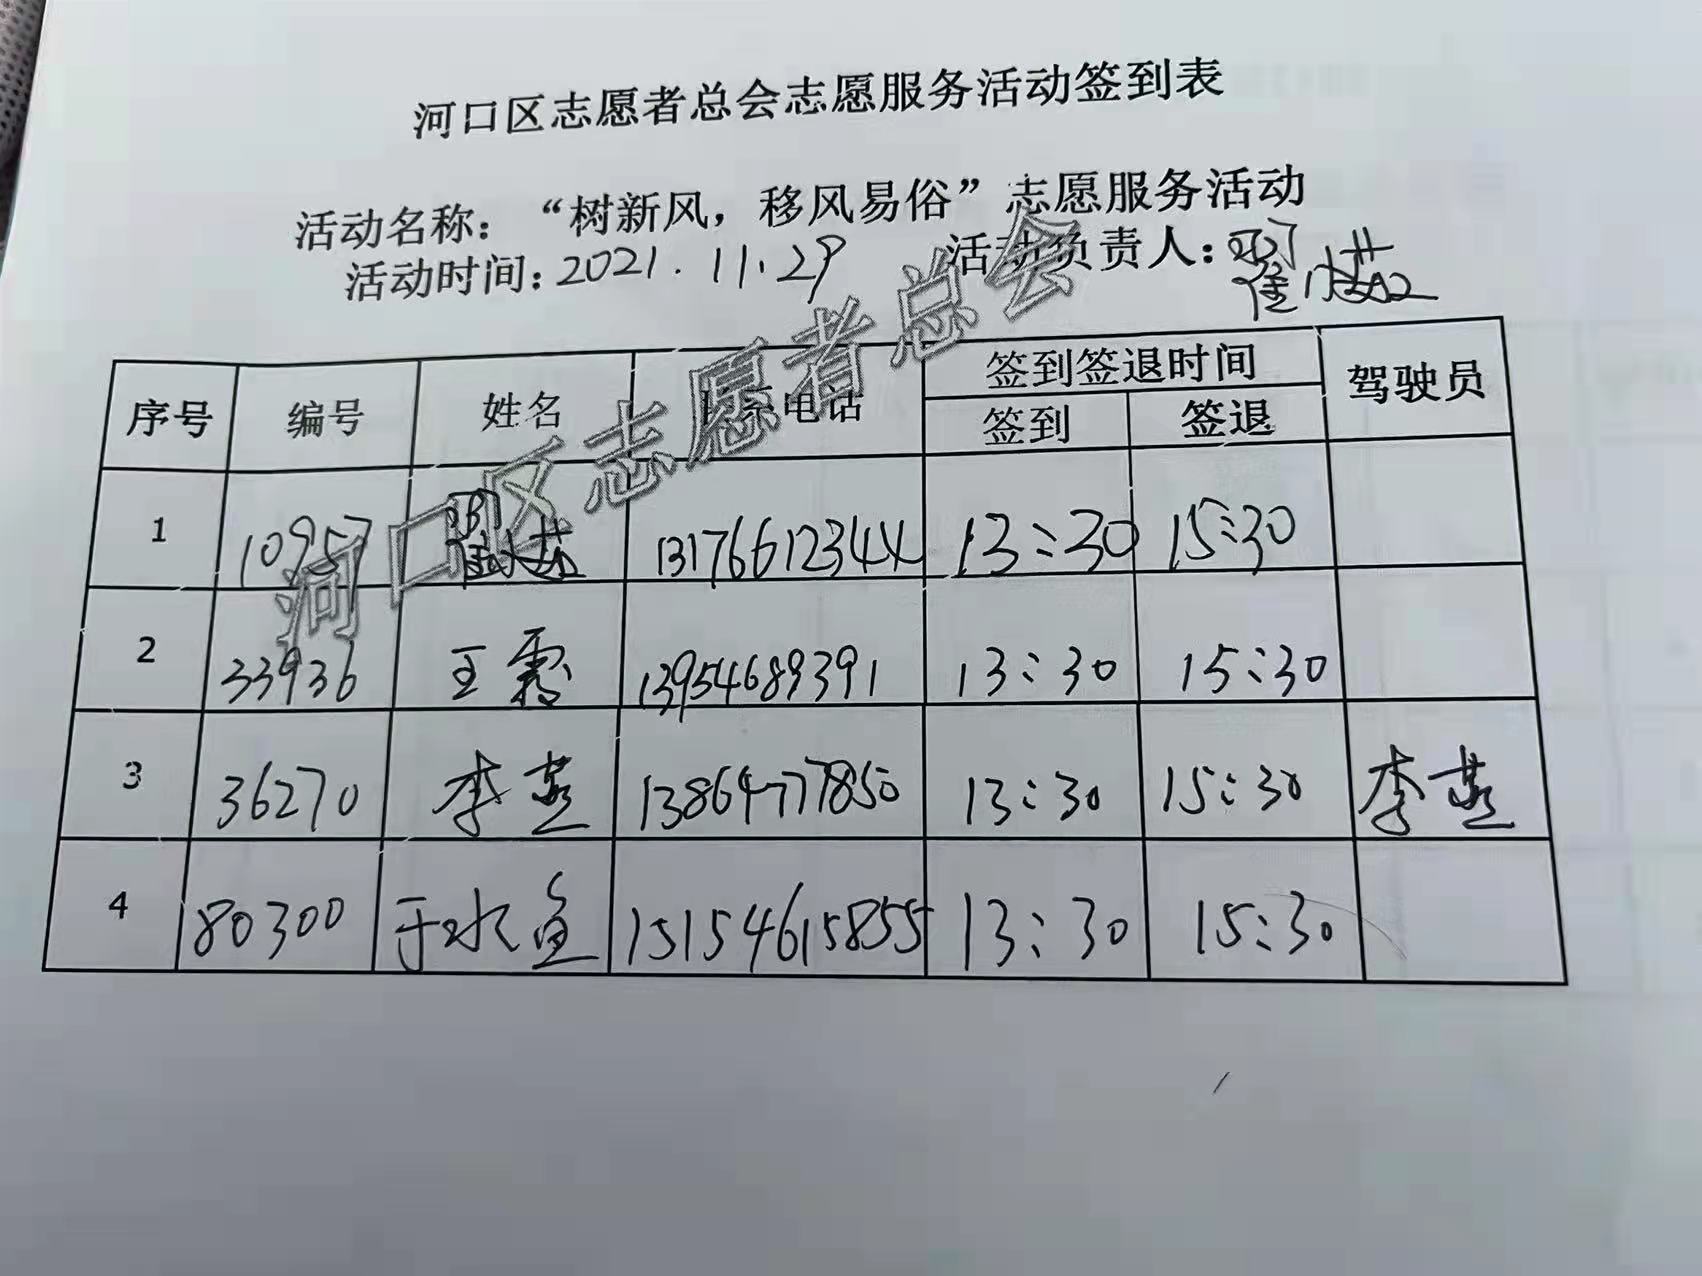 河口区志愿者总会志愿服务活动签到表
活动名称：“树新风，移风易俗”志愿服务活动
活动时间：2021.11.29 活动负责人：翟小燕
序号 编号 姓名 联系电话 签到签退时间 驾驶员
签到 签退
1 10957 13176612344 13:30 15:30
2 33936 王霞 13954689391 13:30 15:30
3 36270 李燕 13864777850 13:30 15:30 李燕
4 80300 于水鱼 15154615855 13:30 15:30
河口区志愿者总会